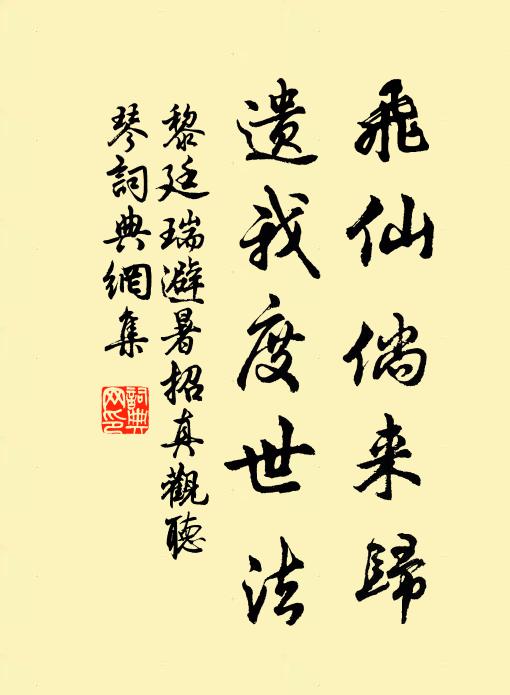 飛仙倘来歸
遺我度世法
黎廷瑞避暑招真觀聽
琴詞典網集
詞典
网印